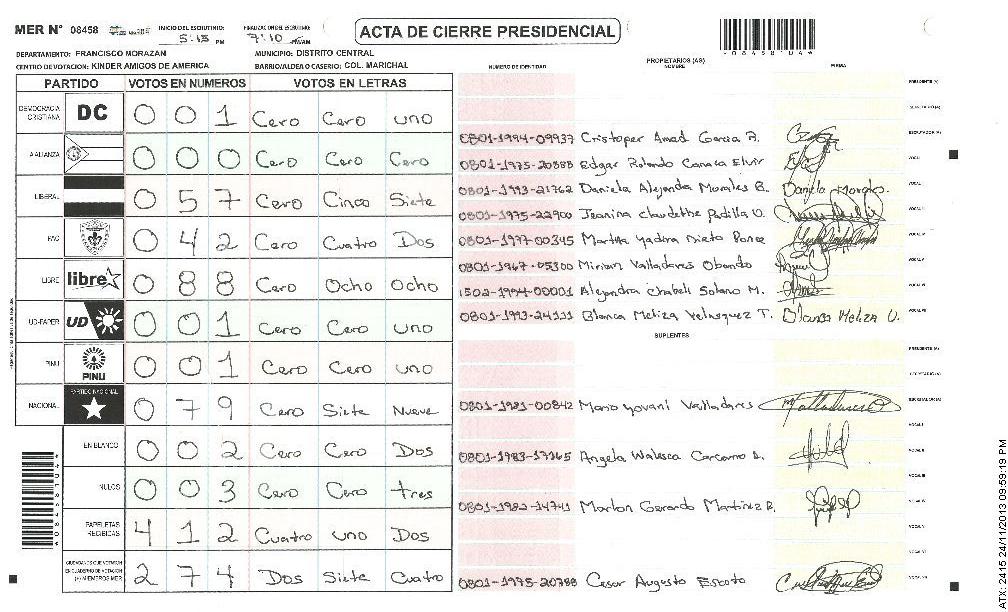 MER N° 08458 INICIO DEL ESCRUTINIO: 5:15 PM FINALIZACION DEL ESCRUTINIO: 7:10 PM/AM ACTA DE CIERRE PRESIDENCIAL
DEPARTAMENTO: FRANCISCO MORAZAN MUNICIPIO: DISTRITO CENTRAL
CENTRO DE VOTACION: KINDER AMIGOS DE AMERICA BARRIO/ALDEA O CASERIO: COL. MARICHAL
PARTIDO VOTOS EN NUMEROS VOTOS EN LETRAS
DEMOCRACIA CRISTIANA DC 0 0 1 Cero Cero uno
A ALIANZA 0 0 0 Cero Cero Cero
LIBERAL 0 5 7 Cero Cinco Siete
PAC 0 4 2 Cero Cuatro Dos
LIBRE libre 0 8 8 Cero Ocho Ocho
UD-FAPER UD 0 0 1 Cero Cero uno
PINU PINU 0 0 1 Cero Cero uno
NACIONAL PARTIDO NACIONAL 0 7 9 Cero Siete Nueve
EN BLANCO 0 0 2 Cero Cero Dos
NULOS 0 0 3 Cero Cero tres
PAPELETAS RECIBIDAS 4 1 2 Cuatro uno Dos
CIUDADANOS QUE VOTARON EN CUADERNO DE VOTACION (+) MIEMBROS MER 2 7 4 Dos Siete Cuatro
NUMERO DE IDENTIDAD PROPIETARIOS (AS) NOMBRE FIRMA
PRESIDENTE (A)
SECRETARIO (A)
0801-1994-09937 Cristoper Amad Garcia A. ESCRUTADOR (A)
0801-1975-20888 Edgar Rolando
0801-1993-21762 Daniela Alejandra Morales B. Daniela Morales
0801-1975-22900 Jeanina Claudethe Padilla O.
0801-1977-00345 Martha Yadira Nieto Ponce
0801-1967-05300 Miriam Valladares Obando
1502-1994-00001 Alejandra Chabeli Solano M.
0801-1993-24111 Blanca Meliza Velasquez T. Blanca Meliza V.
SUPLENTES
PRESIDENTE (A)
SECRETARIO (A)
0801-1981-00842 Mario Yovani Valladares ESCRUTADOR (A)
0801-1983-17165 Angela Waleska Carcamo
0801-1982-14741 Marlon Gerardo Martinez R.
0801-1975-20788 Cesar Augusto Escoto
ATX: 2415 24/11/2013 09:59:19 PM